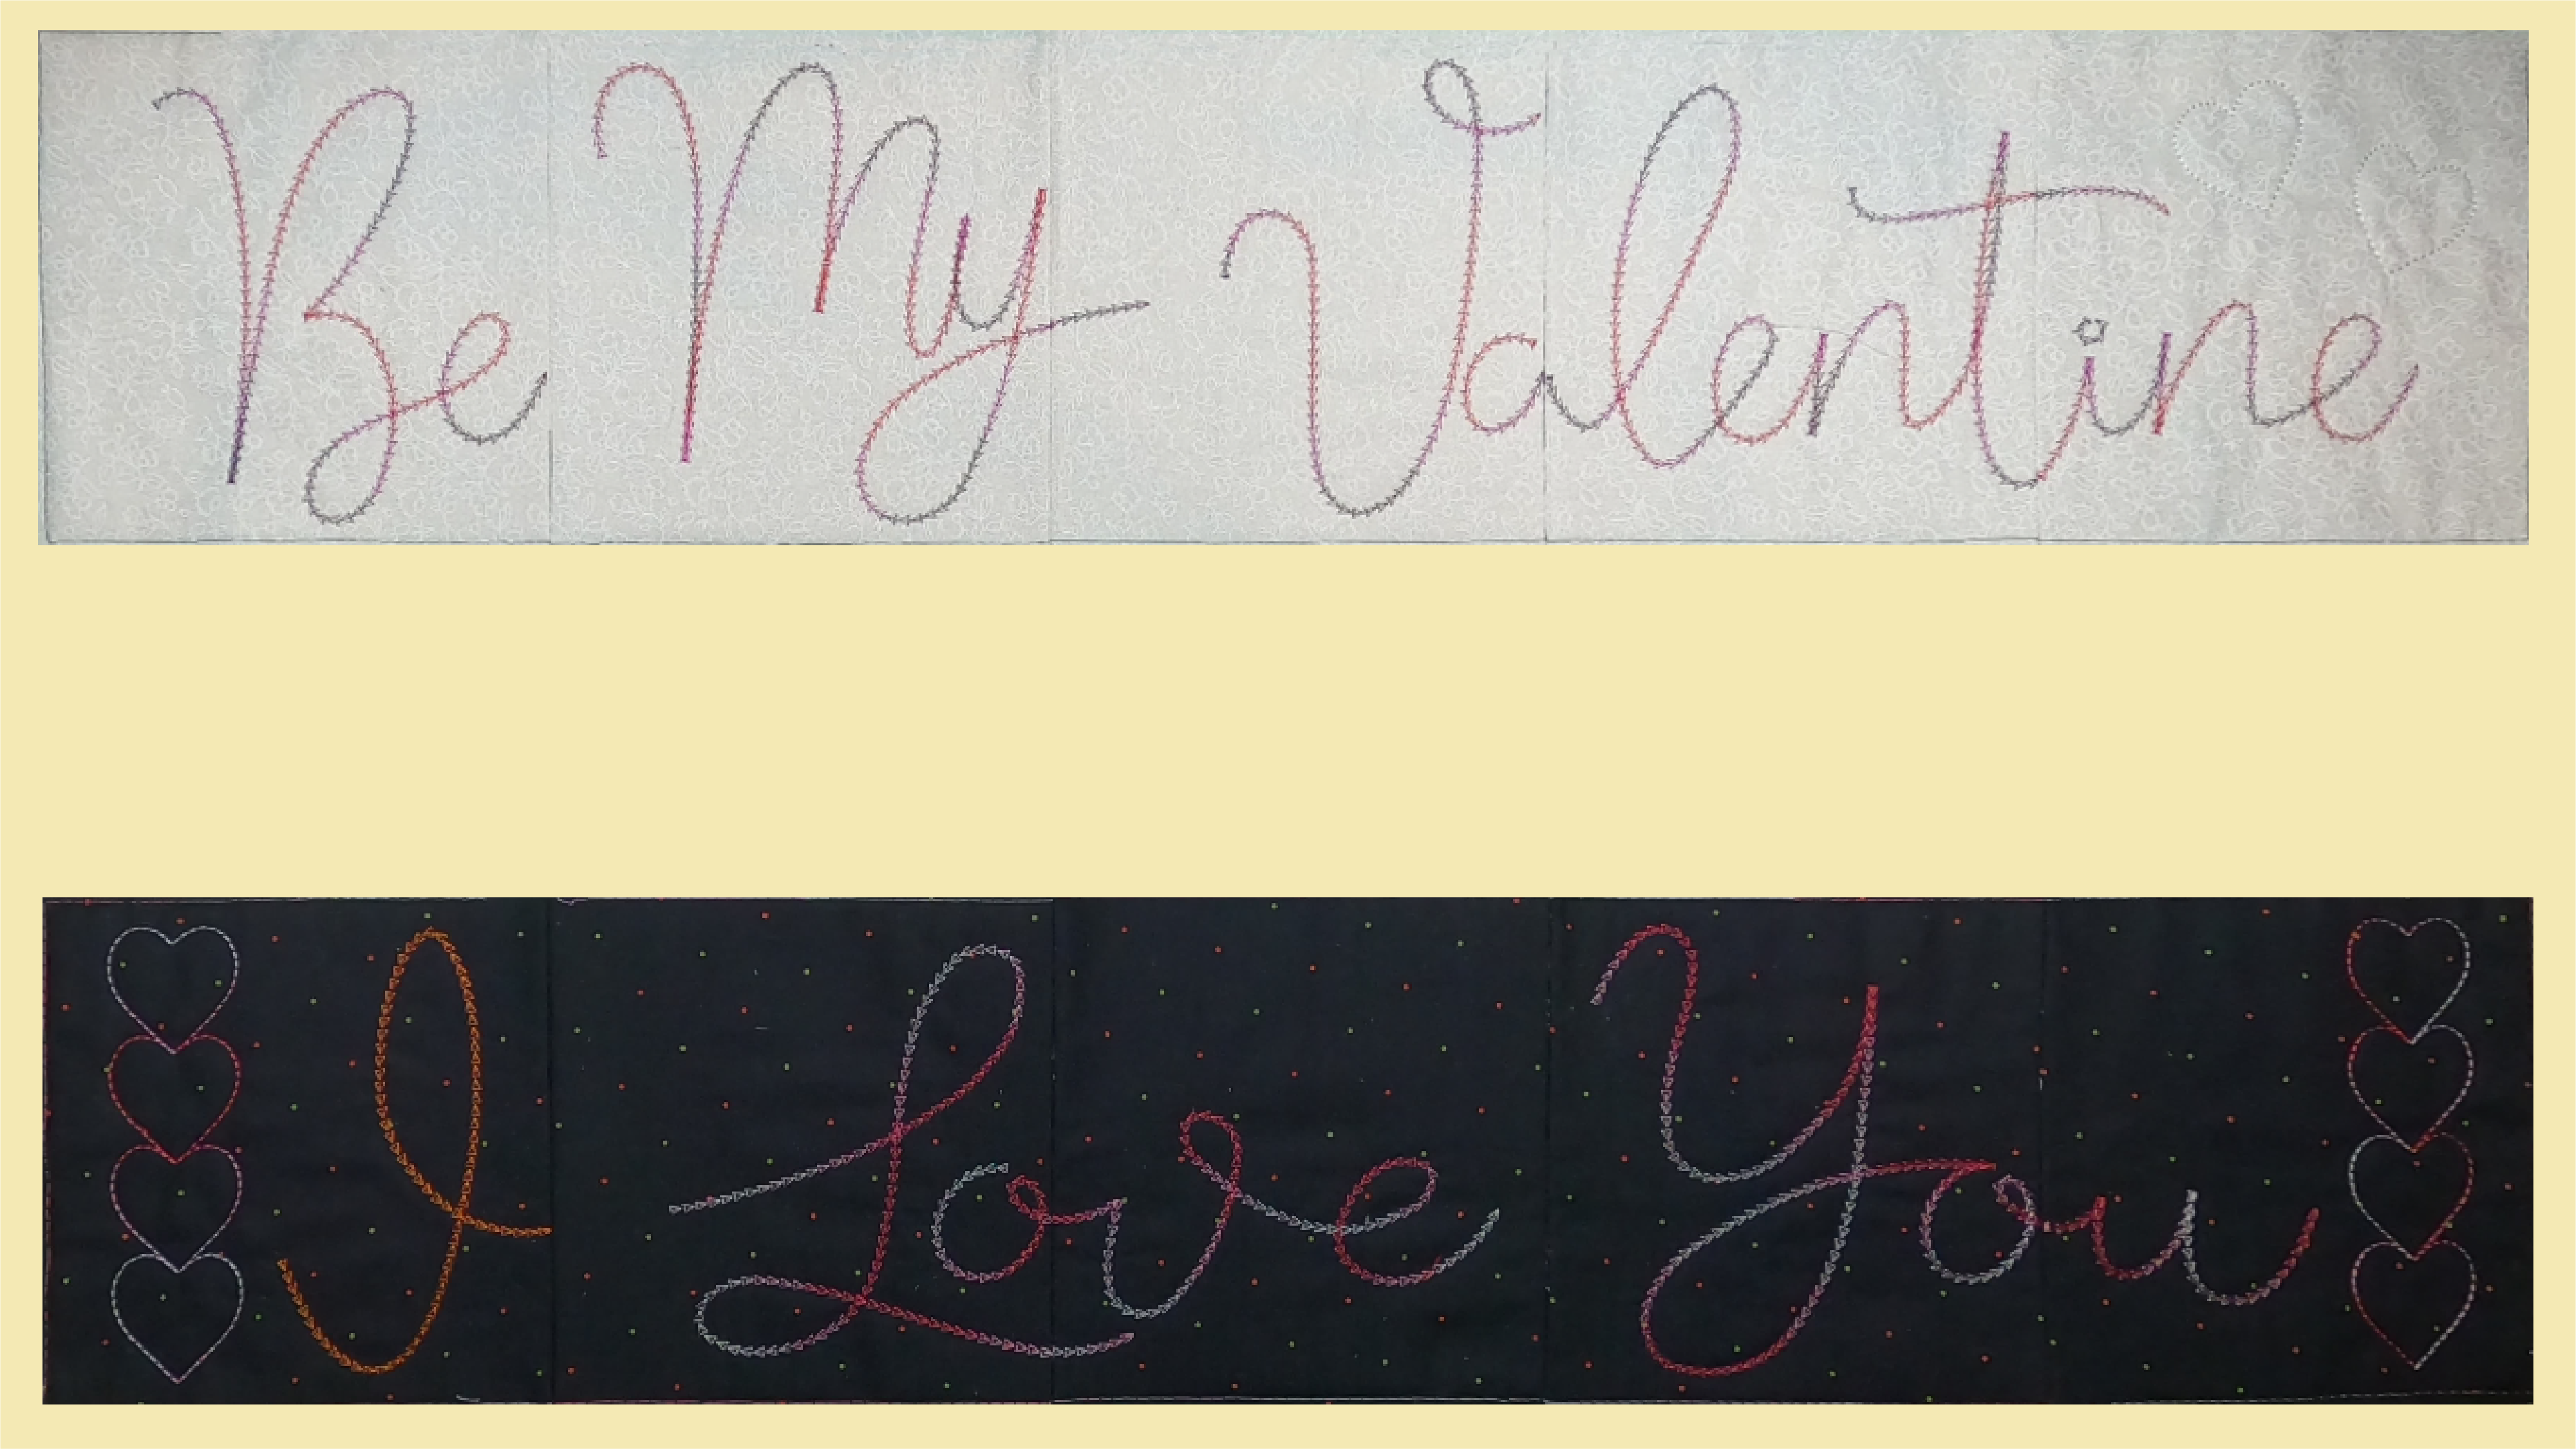 Be My Valentine
I Love You